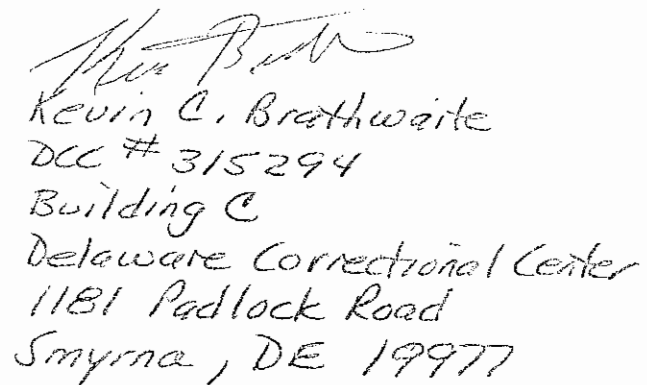 Kevin C. Brathwaite
DCC # 315294
Building C
Delaware Correctional Center
1181 Padlock Road
Smyrna, DE 19977